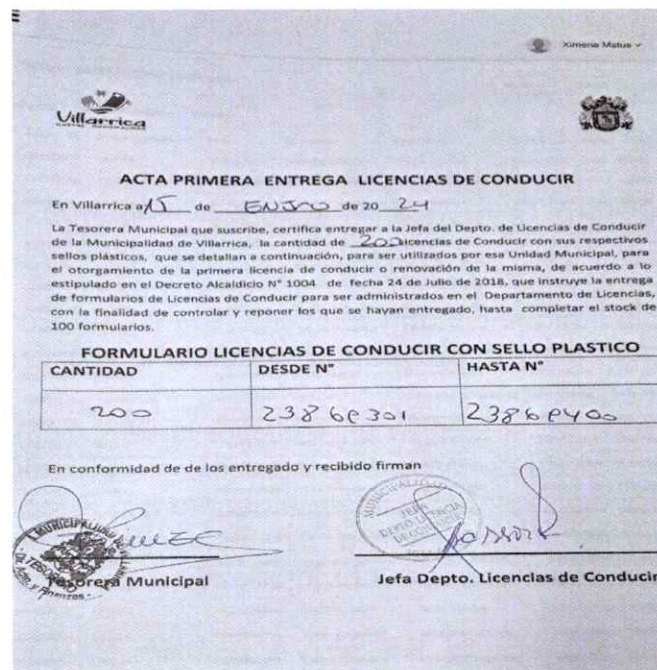 Ximena Matus
Villarrica
ACTA PRIMERA ENTREGA LICENCIAS DE CONDUCIR
En Villarrica a 15 de ENERO de 20 24
La Tesorera Municipal que suscribe, certifica entregar a la Jefa del Depto. de Licencias de Conducir
de la Municipalidad de Villarrica, la cantidad de 200 licencias de Conducir con sus respectivos
sellos plásticos, que se detallan a continuación, para ser utilizados por esa Unidad Municipal, para
el otorgamiento de la primera licencia de conducir o renovación de la misma, de acuerdo a lo
estipulado en el Decreto Alcaldicio N° 1004 de fecha 24 de Julio de 2018, que instruye la entrega
de formularios de Licencias de Conducir para ser administrados en el Departamento de Licencias,
con la finalidad de controlar y reponer los que se hayan entregado, hasta completar el stock de
100 formularios.
FORMULARIO LICENCIAS DE CONDUCIR CON SELLO PLASTICO
CANTIDAD DESDE N° HASTA N°
200
En conformidad de de los entregado y recibido firman
MUNICIPALIDAD
JEFA
DEPTO LICENCIA
TESORERO
y Finanzas
Tesorera Municipal Jefa Depto. Licencias de Conducir